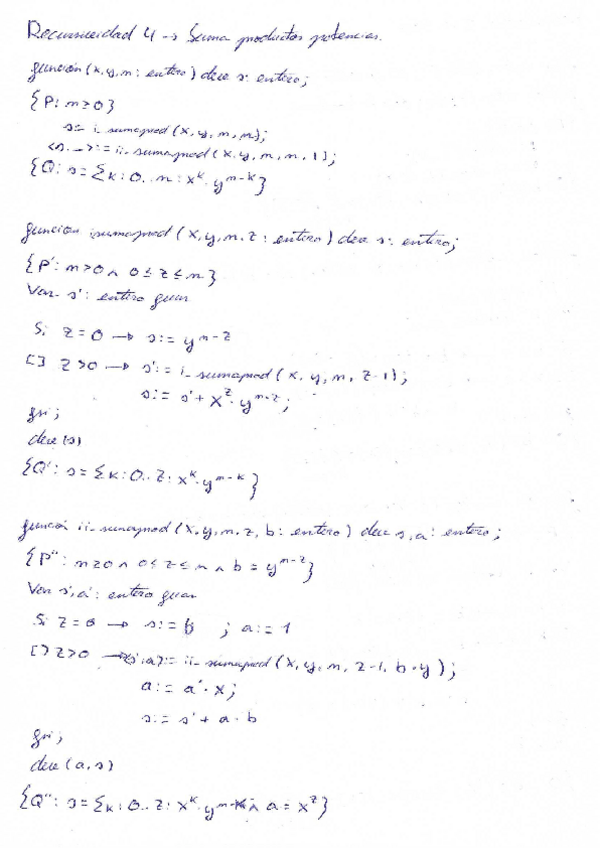 Recursividad 4 → Suma productos potencias.
función (x, y, n: entero) dev s: entero;
{P: n≥0}
s:= i_sumaprod (x, y, n, n);
<s, _>:= ii_sumaprod (x, y, n, n, 1);
{Q: s = Σk: 0..n: x^k · y^n-k}
función isumaprod (x, y, n, z: entero) dev s: entero;
{P': n>0 ∧ 0≤z≤n}
Var s': entero fvar
Si z=0 → s:= y^n-z
[] z>0 → s':= i_sumaprod (x, y, n, z-1);
s:= s' + x^z · y^n-z;
fsi;
dev (s)
{Q': s = Σk: 0..z: x^k · y^n-k}
función ii_sumaprod (x, y, n, z, b: entero) dev s, a: entero;
{P'': n≥0 ∧ 0≤z≤n ∧ b = y^n-z}
Var s', a': entero fvar
Si z=0 → s:= b ; a:= 1
[] z>0 → <s', a>:= ii_sumaprod (x, y, n, z-1, b·y);
a:= a'·x;
s:= s' + a·b
fsi;
dev (a, s)
{Q'': s = Σk: 0..z: x^k · y^n-k ∧ a = x^z}